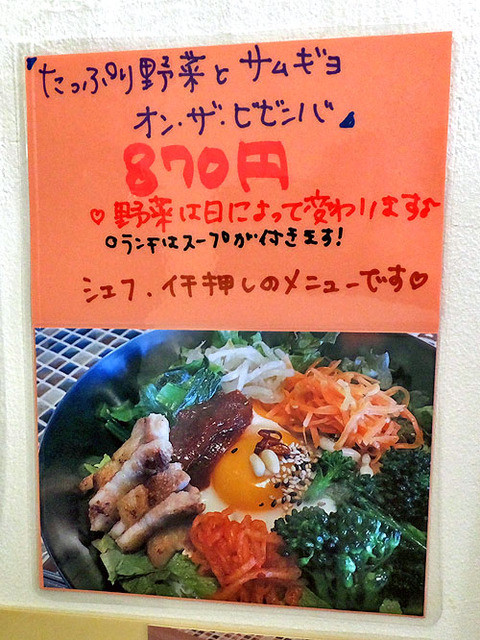 たっぷり野菜とサムギョ
オン・ザ・ビビンバ
870円
♡野菜は日によって変わります♪
○ランチはスープが付きます!
シェフ、イチ押しのメニューです♡